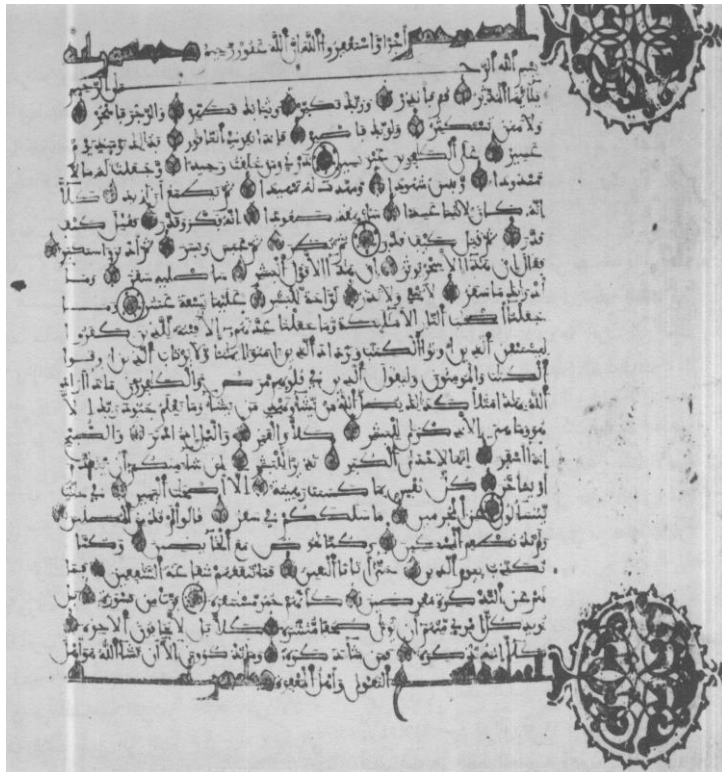 أجرا واستغفروا الله إن الله غفور رحيم
بسم الله الرحمن الرحيم
يأيها المدثر قم فأنذر وربك فكبر وثيابك فطهر والرجز فاهجر
ولا تمنن تستكثر ولربك فاصبر فإذا نقر في الناقور فذلك يومئذ يوم
عسير على الكفرين غير يسير ذرني ومن خلقت وحيدا وجعلت له مالا
ممدودا وبنين شهودا ومهدت له تمهيدا ثم يطمع أن أزيد كلا
إنه كان لأيتنا عنيدا سأرهقه صعودا إنه فكر وقدر فقتل كيف
قدر ثم قتل كيف قدر ثم نظر ثم عبس وبسر ثم أدبر واستكبر
فقال إن هذا إلا سحر يوثر إن هذا إلا قول البشر سأصليه سقر وما
أدريك ما سقر لا تبقي ولا تذر لواحة للبشر عليها تسعة عشر وما
جعلنا أصحب النار إلا مليكة وما جعلنا عدتهم إلا فتنة للذين كفروا
ليستيقن الذين أوتوا الكتب ويزداد الذين ءامنوا إيمنا ولا يرتاب الذين أوتوا
الكتب والمومنون وليقول الذين في قلوبهم مرض والكفرون ماذا أراد
الله بهذا مثلا كذلك يضل الله من يشاء ويهدي من يشاء وما يعلم جنود ربك إلا
هو وما هي إلا ذكرى للبشر كلا والقمر واليل إذ أدبر والصبح
إذا أسفر إنها لإحدى الكبر نذيرا للبشر لمن شاء منكم أن يتقدم
أو يتأخر كل نفس بما كسبت رهينة إلا أصحب اليمين في جنت
يتساءلون عن المجرمين ما سلككم في سقر قالوا لم نك من المصلين
ولم نك نطعم المسكين وكنا نخوض مع الخائضين وكنا
نكذب بيوم الدين حتى أتينا اليقين فما تنفعهم شفعة الشفعين فما
لهم عن التذكرة معرضين كأنهم حمر مستنفرة فرت من قسورة بل
يريد كل امرئ منهم أن يوتى صحفا منشرة كلا بل لا يخافون الأخرة
كلا إنه تذكرة فمن شاء ذكره وما تذكرون إلا أن يشاء الله هو أهل
التقوى وأهل المغفرة